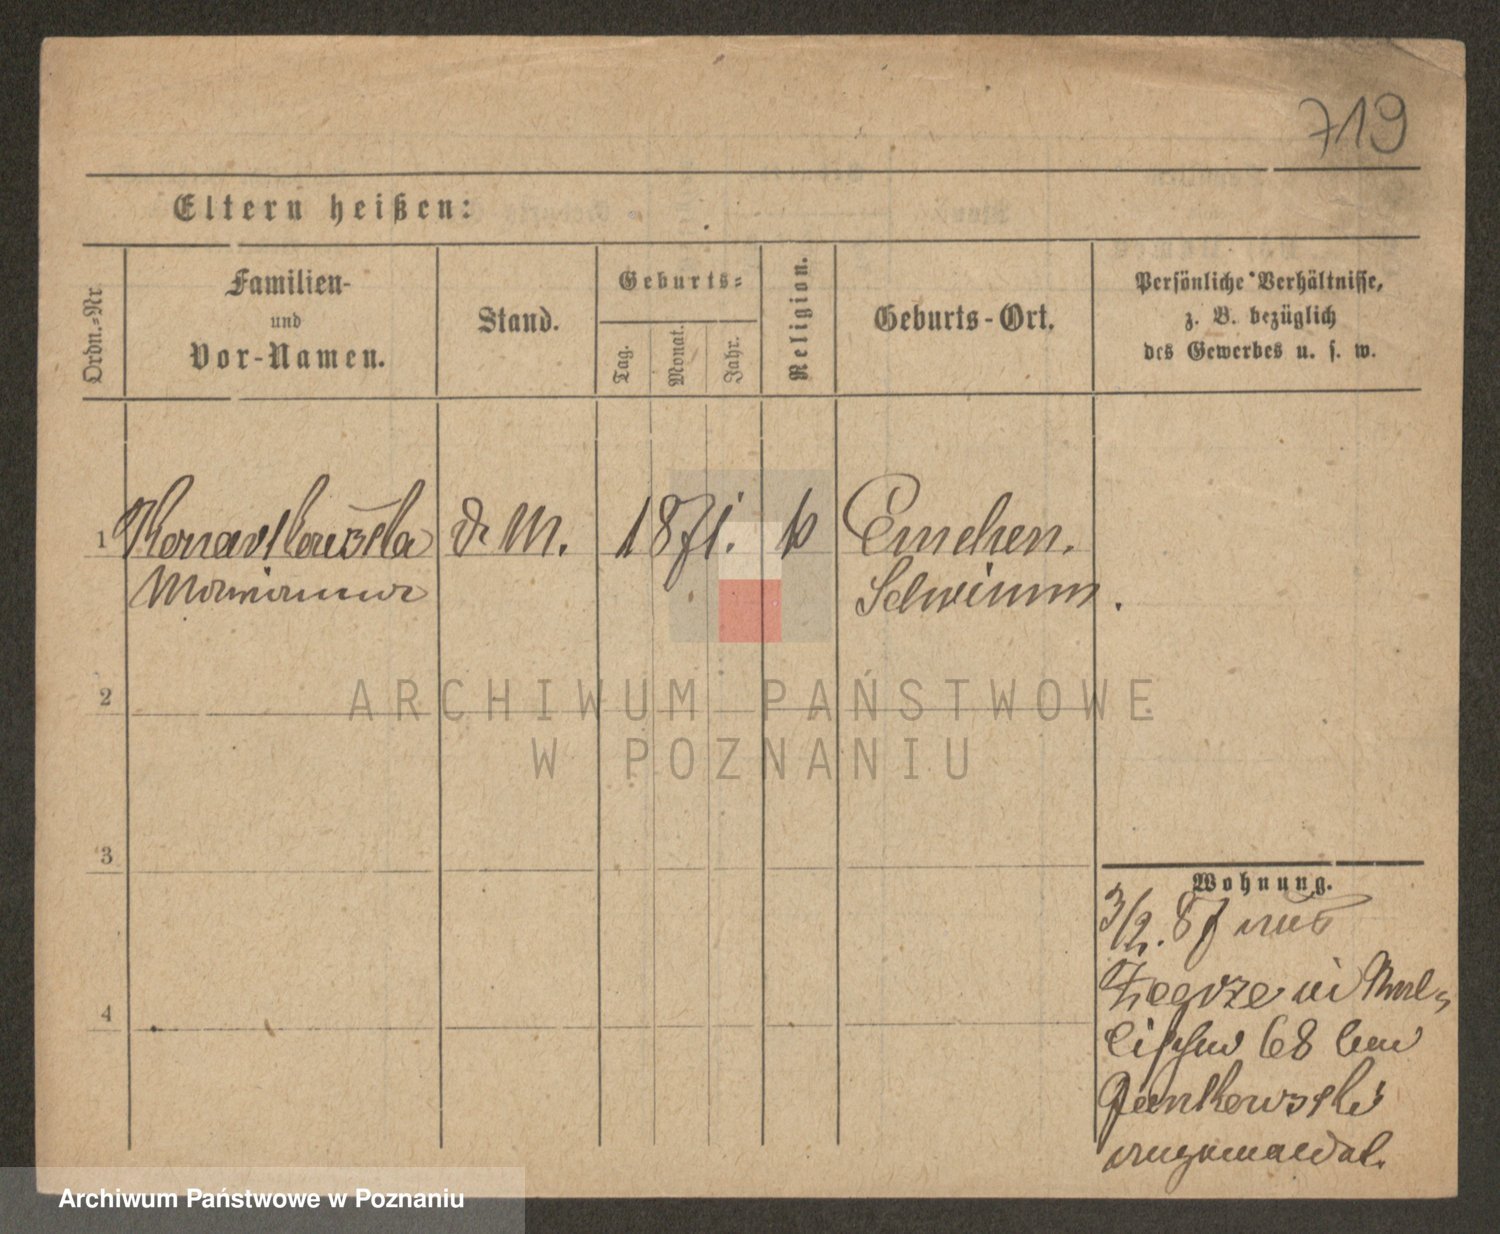 719
Eltern heißen:
Ordn.-Nr.
Familien-
und
Vor-Namen.
Stand.
Geburts-
Tag.
Monat.
Jahr.
Religion.
Geburts-Ort.
Persönliche Verhältnisse,
z. B. bezüglich
des Gewerbes u. s. w.
1
d. M.
1871.
k
Emchen.
Schrimm.
Marianna
2
3
4
ARCHIWUM PAŃSTWOWE
W POZNANIU
Wohnung.
3/2. 87 aus
Zegrze in Wal-
lischei 68 bei
Jankowski
angemeldet.
Archiwum Państwowe w Poznaniu